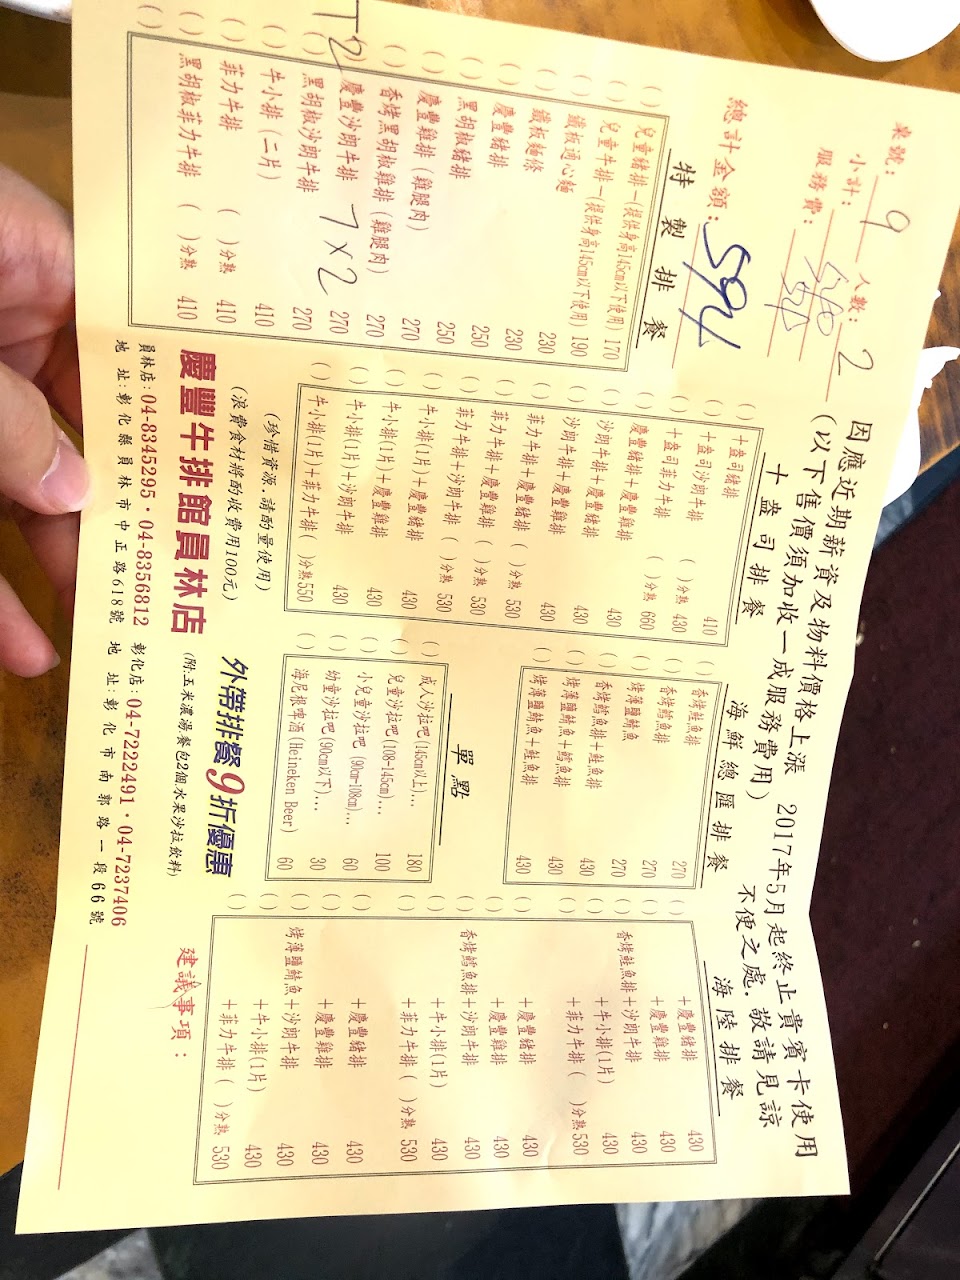 桌號：9 人數：2
小計：540
服務費：54
總計金額：594
因應近期薪資及物料價格上漲
（以下售價須加收一成服務費用）
2017年5月起終止貴賓卡使用
不便之處．敬請見諒
特製排餐
（ ）兒童豬排－(提供身高145cm以下使用) 170
（ ）兒童牛排－(提供身高145cm以下使用) 190
（ ）鐵板通心麵 230
（ ）鐵板麵條 230
（ ）慶豐豬排 250
（ ）黑胡椒豬排 250
（ ）慶豐雞排 (雞腿肉) 270
（ ）香烤黑胡椒雞排 (雞腿肉) 270
（ ）慶豐沙朗牛排 7×2 270
T2
（ ）黑胡椒沙朗牛排 270
（ ）牛小排 (二片) 410
（ ）菲力牛排 （ ）分熟 410
（ ）黑胡椒菲力牛排 （ ）分熟 410
十盎司排餐
（ ）十盎司豬排 410
（ ）十盎司沙朗牛排 （ ）分熟 430
（ ）十盎司菲力牛排 （ ）分熟 660
（ ）慶豐豬排＋慶豐雞排 430
（ ）沙朗牛排＋慶豐豬排 430
（ ）沙朗牛排＋慶豐雞排 430
（ ）菲力牛排＋慶豐豬排（ ）分熟 530
（ ）菲力牛排＋慶豐雞排（ ）分熟 530
（ ）菲力牛排＋沙朗牛排（ ）分熟 530
（ ）牛小排(1片)＋慶豐豬排 430
（ ）牛小排(1片)＋慶豐雞排 430
（ ）牛小排(1片)＋沙朗牛排 430
（ ）牛小排(1片)＋菲力牛排（ ）分熟 550
海鮮總匯排餐
（ ）香烤鮭魚排 270
（ ）香烤鱈魚排 270
（ ）烤薄鹽鯖魚 270
（ ）香烤鱈魚排＋鮭魚排 430
（ ）烤薄鹽鯖魚＋鱈魚排 430
（ ）烤薄鹽鯖魚＋鮭魚排 430
單點
（ ）成人沙拉吧(145cm以上)... 180
（ ）兒童沙拉吧(108-145cm)... 100
（ ）小兒童沙拉吧 (90cm-108cm)... 60
（ ）幼童沙拉吧(90cm以下)... 30
（ ）海尼根啤酒(Heineken Beer) 60
海陸排餐
（ ） ＋慶豐豬排 430
（ ） ＋慶豐雞排 430
（ ）香烤鮭魚排＋沙朗牛排 430
（ ） ＋牛小排(1片) 430
（ ） ＋菲力牛排（ ）分熟 530
（ ） ＋慶豐豬排 430
（ ） ＋慶豐雞排 430
（ ）香烤鱈魚排＋沙朗牛排 430
（ ） ＋牛小排(1片) 430
（ ） ＋菲力牛排（ ）分熟 530
（ ） ＋慶豐豬排 430
（ ） ＋慶豐雞排 430
（ ）烤薄鹽鯖魚＋沙朗牛排 430
（ ） ＋牛小排(1片) 430
（ ） ＋菲力牛排（ ）分熟 530
(珍惜資源．請酌量使用)
(浪費食材將酌收費用100元)
外帶排餐9折優惠
(附:玉米濃湯.餐包2個.水果沙拉.飲料)
建議事項：
慶豐牛排館員林店
員林店：04-8345295．04-8356812 彰化店：04-7222491．04-7237406
地址：彰化縣員林市中正路618號 地址：彰化市南郭路一段66號